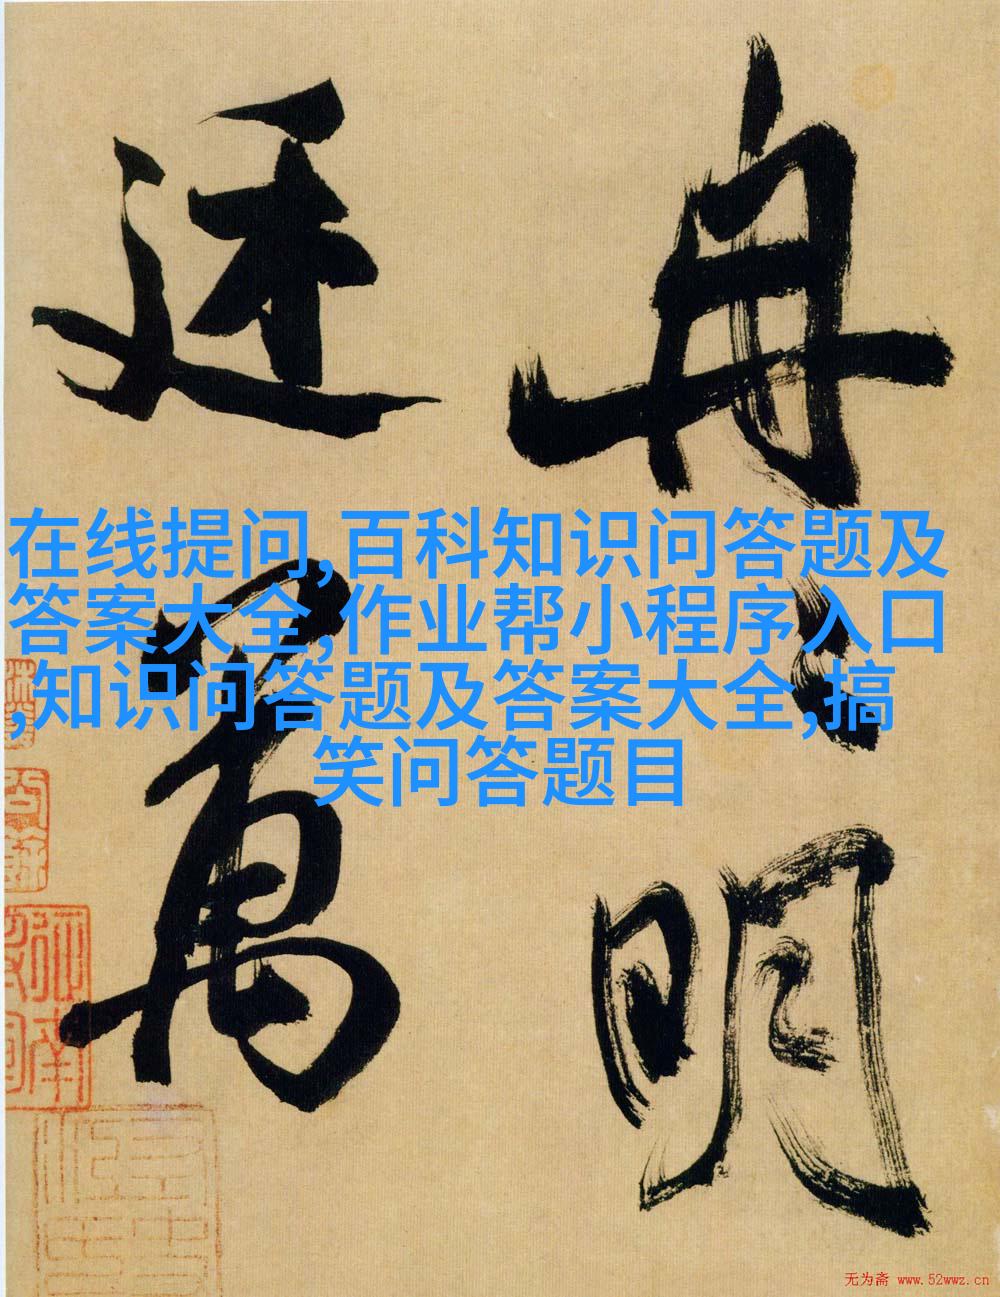 冉〻明
廷萬
在线提问,百科知识问答题及
答案大全,作业帮小程序入口
,知识问答题及答案大全,搞
笑问答题目
无为斋 www.52wwz.cn